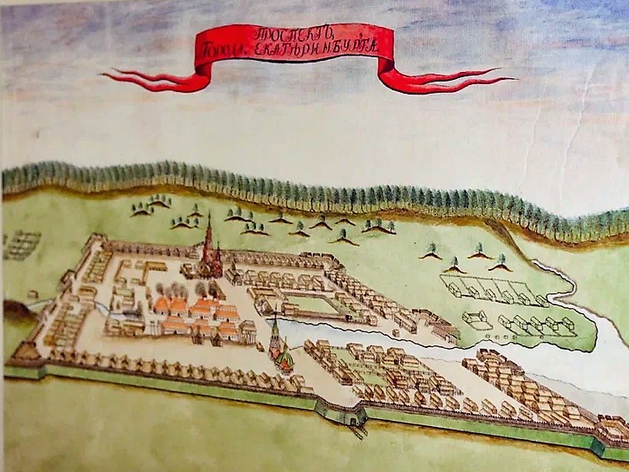 ПРОСПЕКТЪ,
Города ЕКАТѢРИНБУРГА